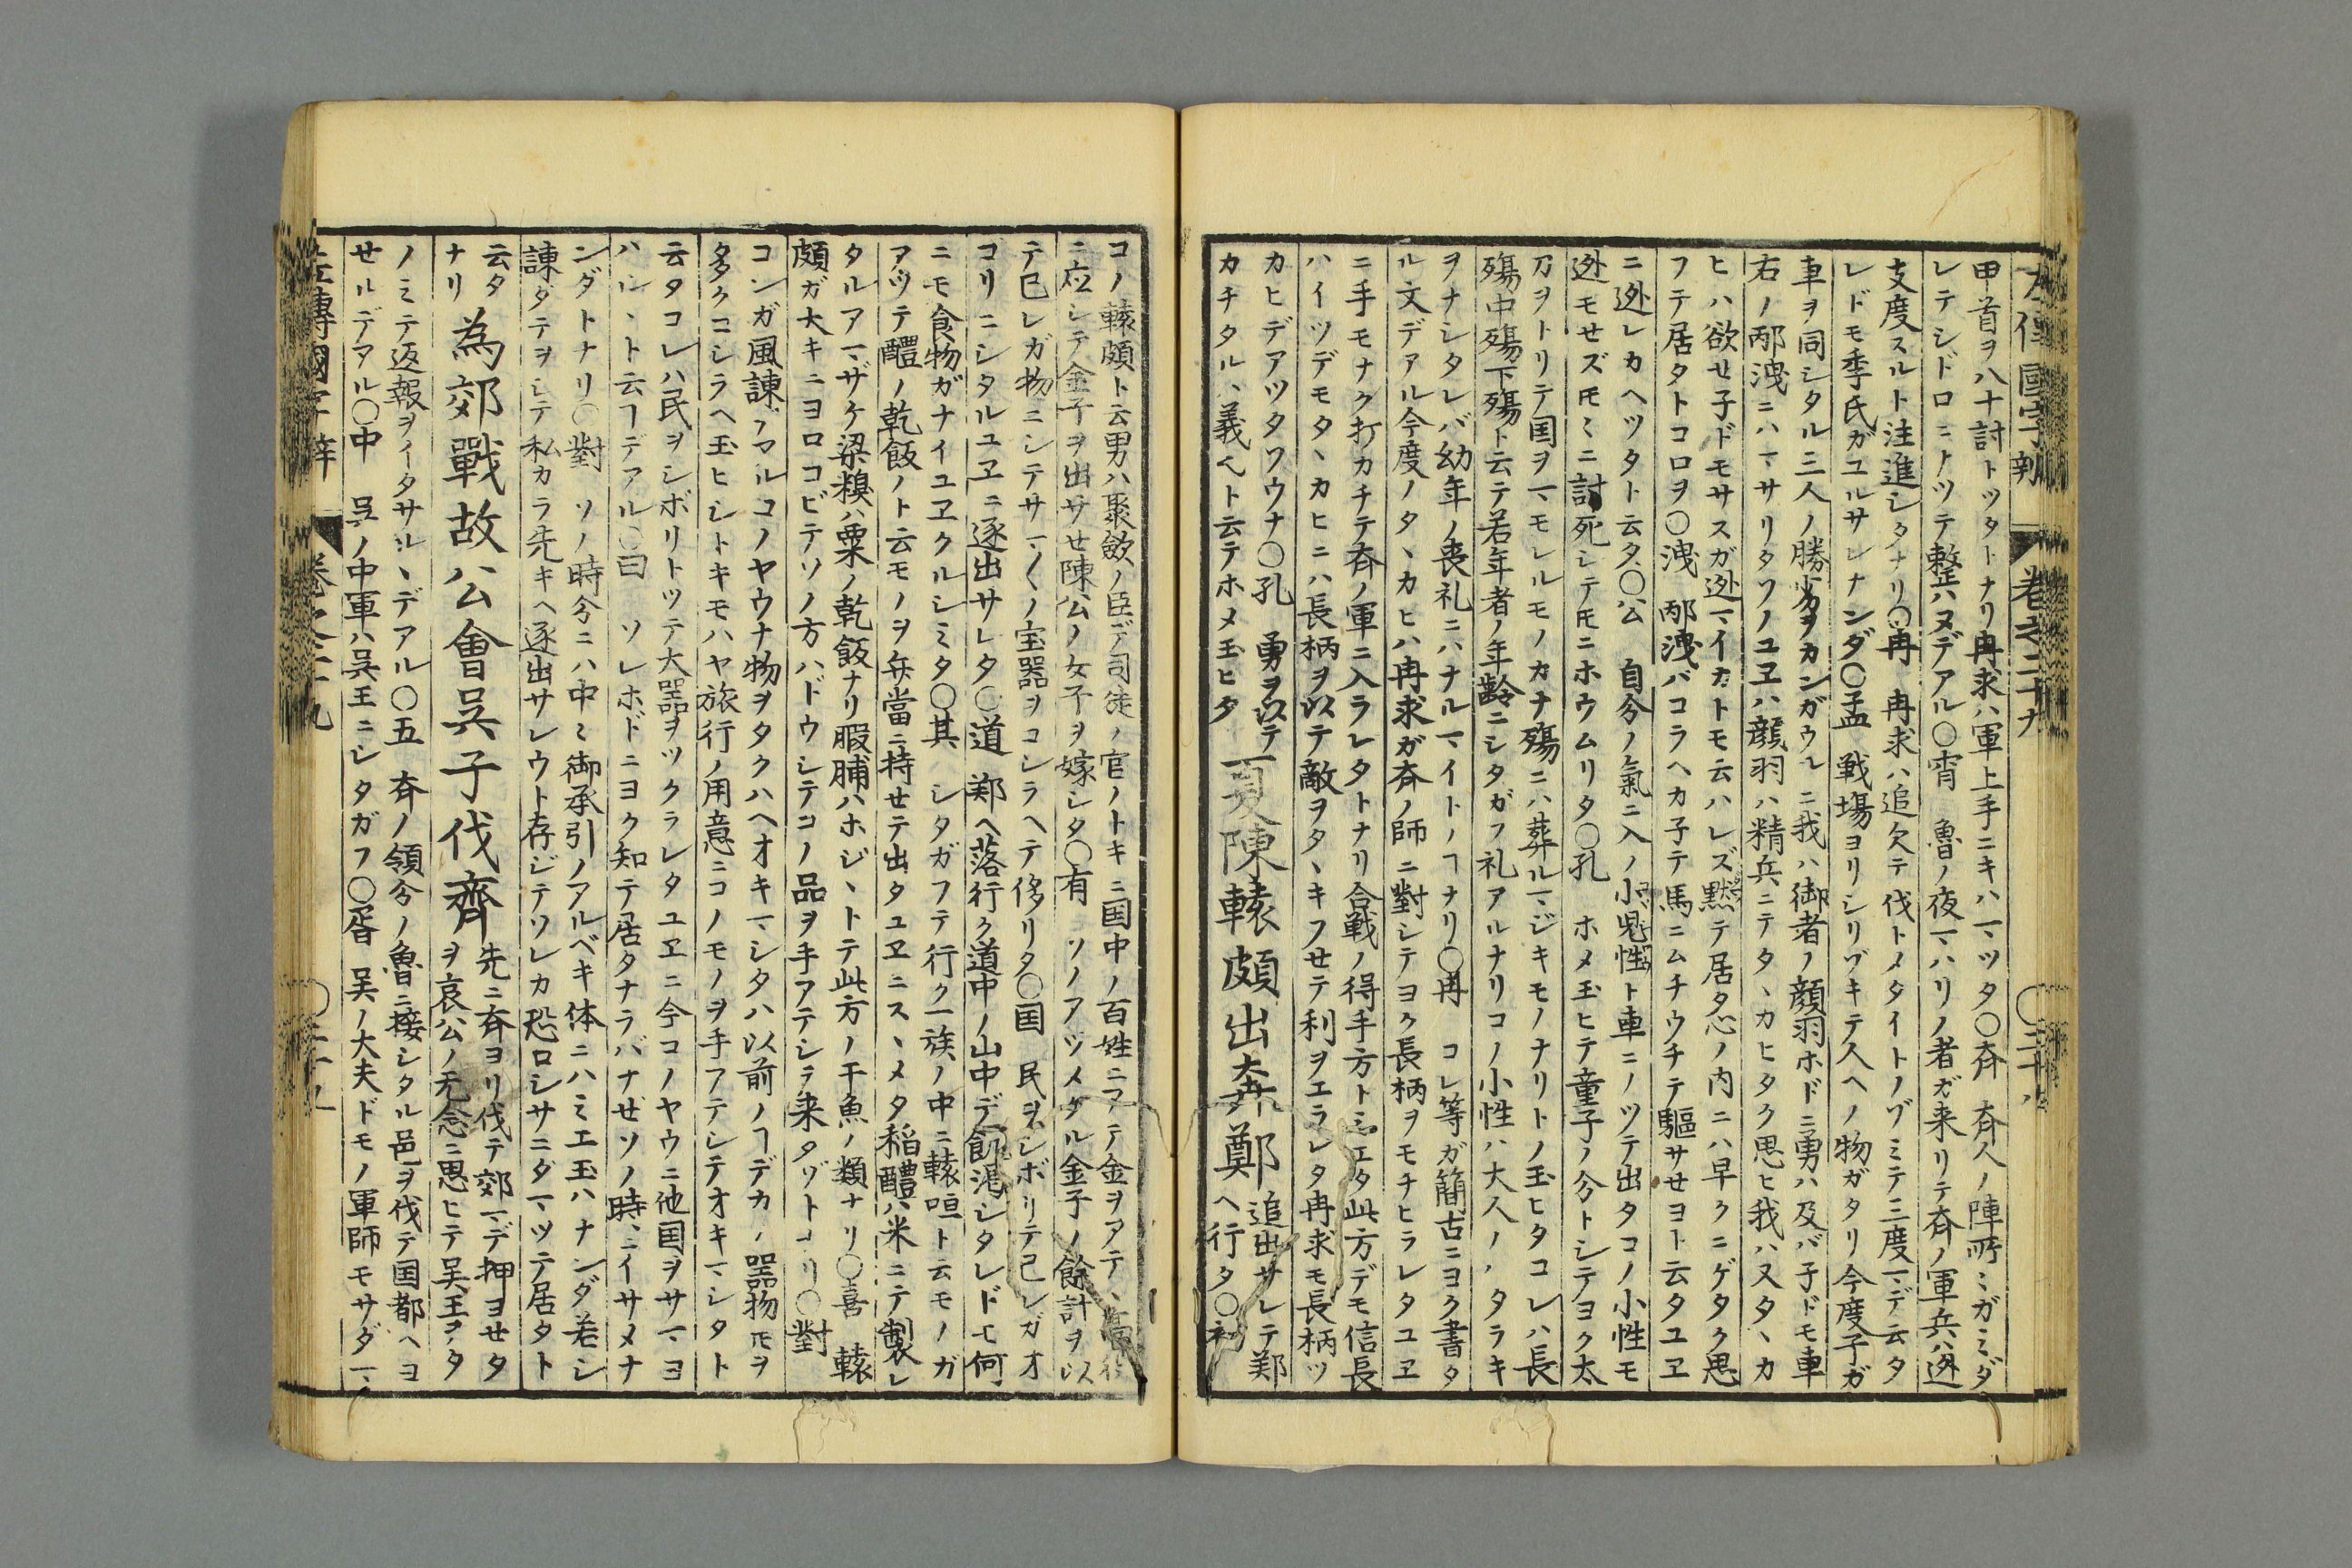 左傳國字辯 卷之二十九
甲首ヲ八十討トツタトナリ冉求ハ軍上手ニキハマツタ〇斉 斉人ノ陣所ミガミダ
レテシドロニナツテ整ハヌデアル〇宵 魯ノ夜マハリノ者ガ来リテ斉ノ軍兵ハ迯
支度スルト注進シタナリ〇冉 冉求ハ追欠テ伐トメタイトノゾミテ三度マデ云タ
レドモ季氏ガユルサレナンダ〇孟 戦場ヨリシリゾキテ人ヘノ物ガタリ今度子ガ
車ヲ同シタル三人ノ勝劣ヲカンガウルニ我ハ御者ノ顔羽ホドニ勇ハ及バ子ドモ車
右ノ邴洩ニハマサリタワノユヱハ顔羽ハ精兵ニテタヽカヒタク思ヒ我ハ又タヽカ
ヒハ欲セ子ドモサスガ迯マイカトモ云ハレズ黙テ居タ心ノ内ニハ早クニゲタク思
フテ居タトコロヲ〇洩 邴洩バコラヘカ子テ馬ニムチウチテ驅サセヨト云タユヱ
ニ迯レカヘツタト云タ〇公 自分ノ氣ニ入ノ小児性ト車ニノツテ出タコノ小性モ
迯モセズ𪜈ミニ討死シテ𪜈ニホウムリタ〇孔 ホメ玉ヒテ童子ノ分トシテヨク太
刀ヲトリテ国ヲマモレルモノカナ殤ニハ葬ルマジキモノナリトノ玉ヒタコレハ長
殤中殤下殤ト云テ若年者ノ年齢ニシタガフ礼アルナリコノ小性ハ大人ノハタラキ
ヲナシタレバ幼年ノ喪礼ニハナルマイトノヿナリ〇冉 コレ等ガ簡古ニヨク書タ
ル文デアル今度ノタヽカヒハ冉求ガ斉ノ師ニ對シテヨク長柄ヲモチヒラレタユヱ
ニ手モナク打カチテ斉ノ軍ニ入ラレタトナリ合戦ノ得手方トミエタ此方デモ信長
ハイツデモタヽカヒニハ長柄ヲ以テ敵ヲタヽキフセテ利ヲエラレタ冉求モ長柄ツ
カヒデアツタワウナ〇孔 勇ヲ以テ
カチタルヽ義ヘト云テホメ玉ヒタ
夏陳轅頗出奔鄭
追出サレテ鄭
ヘ行タ〇初
コノ轅頗ト云男ハ聚斂ノ臣デ司徒ノ官ノトキニ国中ノ百姓ニアテ金ヲアテヽ
ニ応シテ金子ヲ出サセ陳公ノ女子ヲ嫁シタ〇有 ソノアツメタル金子ノ餘計ヲ以
テ已レガ物ニシテサマ〱ノ宝器ヲコシラヘテ侈リタ〇国 民ヲシボリテ己レガオ
コリニシタルユヱニ逐出サレタ〇道 鄭ヘ落行ク道中ノ山中デ飢渇シタレドモ何
ニモ食物ガナイユヱクルシミタ〇其 シタガフテ行ク一族ノ中ニ轅咺ト云モノガ
アツテ醴ノ乾飯ノト云モノヲ弁當ニ持セテ出タユヱニスヽメタ稲醴ハ米ニテ製レ
タルアマザケ梁糗ハ粟ノ乾飯ナリ腶脯ハホジヽトテ此方ノ干魚ノ類ナリ〇喜 轅
頗ガ大キニヨロコビテソノ方ハドウシテコノ品ヲ手アテシテ来タゾトナリ〇對
コンガ風諫ニアルコノヤウナ物ヲタクハヘオキマシタハ以前ノヿデカノ器物𪜈ヲ
多クコシラヘ玉ヒシトキモハヤ旅行ノ用意ニコノモノヲ手フテシテオキマシタト
云タコレハ民ヲシボリトツテ大器ヲツクラレタユヱニ今コノヤウニ他国ヲサマヨ
ハルヽト云ヿデアル〇曰 ソレホドニヨク知テ居タナラバナゼソノ時ニイサメナ
ンダトナリ〇對 ソノ時分ニハ中ミ御承引ノアルベキ体ニハミエ玉ハナンダ若シ
諫タテヲシテ私カラ先キヘ逐出サレウト存ジテソレカ恐ロシサニダマツテ居タト
云タ
ナリ
為郊戰故公會吳子伐齊
先ニ斉ヨリ伐テ郊マデ押ヨセタ
ヲ哀公ノ无念ニ思ヒテ吴王ヲタ
ノミテ返報ヲイタサルヽデアル〇五 斉ノ領分ノ魯ニ接シタル邑ヲ伐テ国都ヘヨ
セルデアル〇中 吴ノ中軍ハ吴王ニシタガフ〇胥 吴ノ大夫ドモノ軍師モサダマ
左傳國字辯 卷之二十九